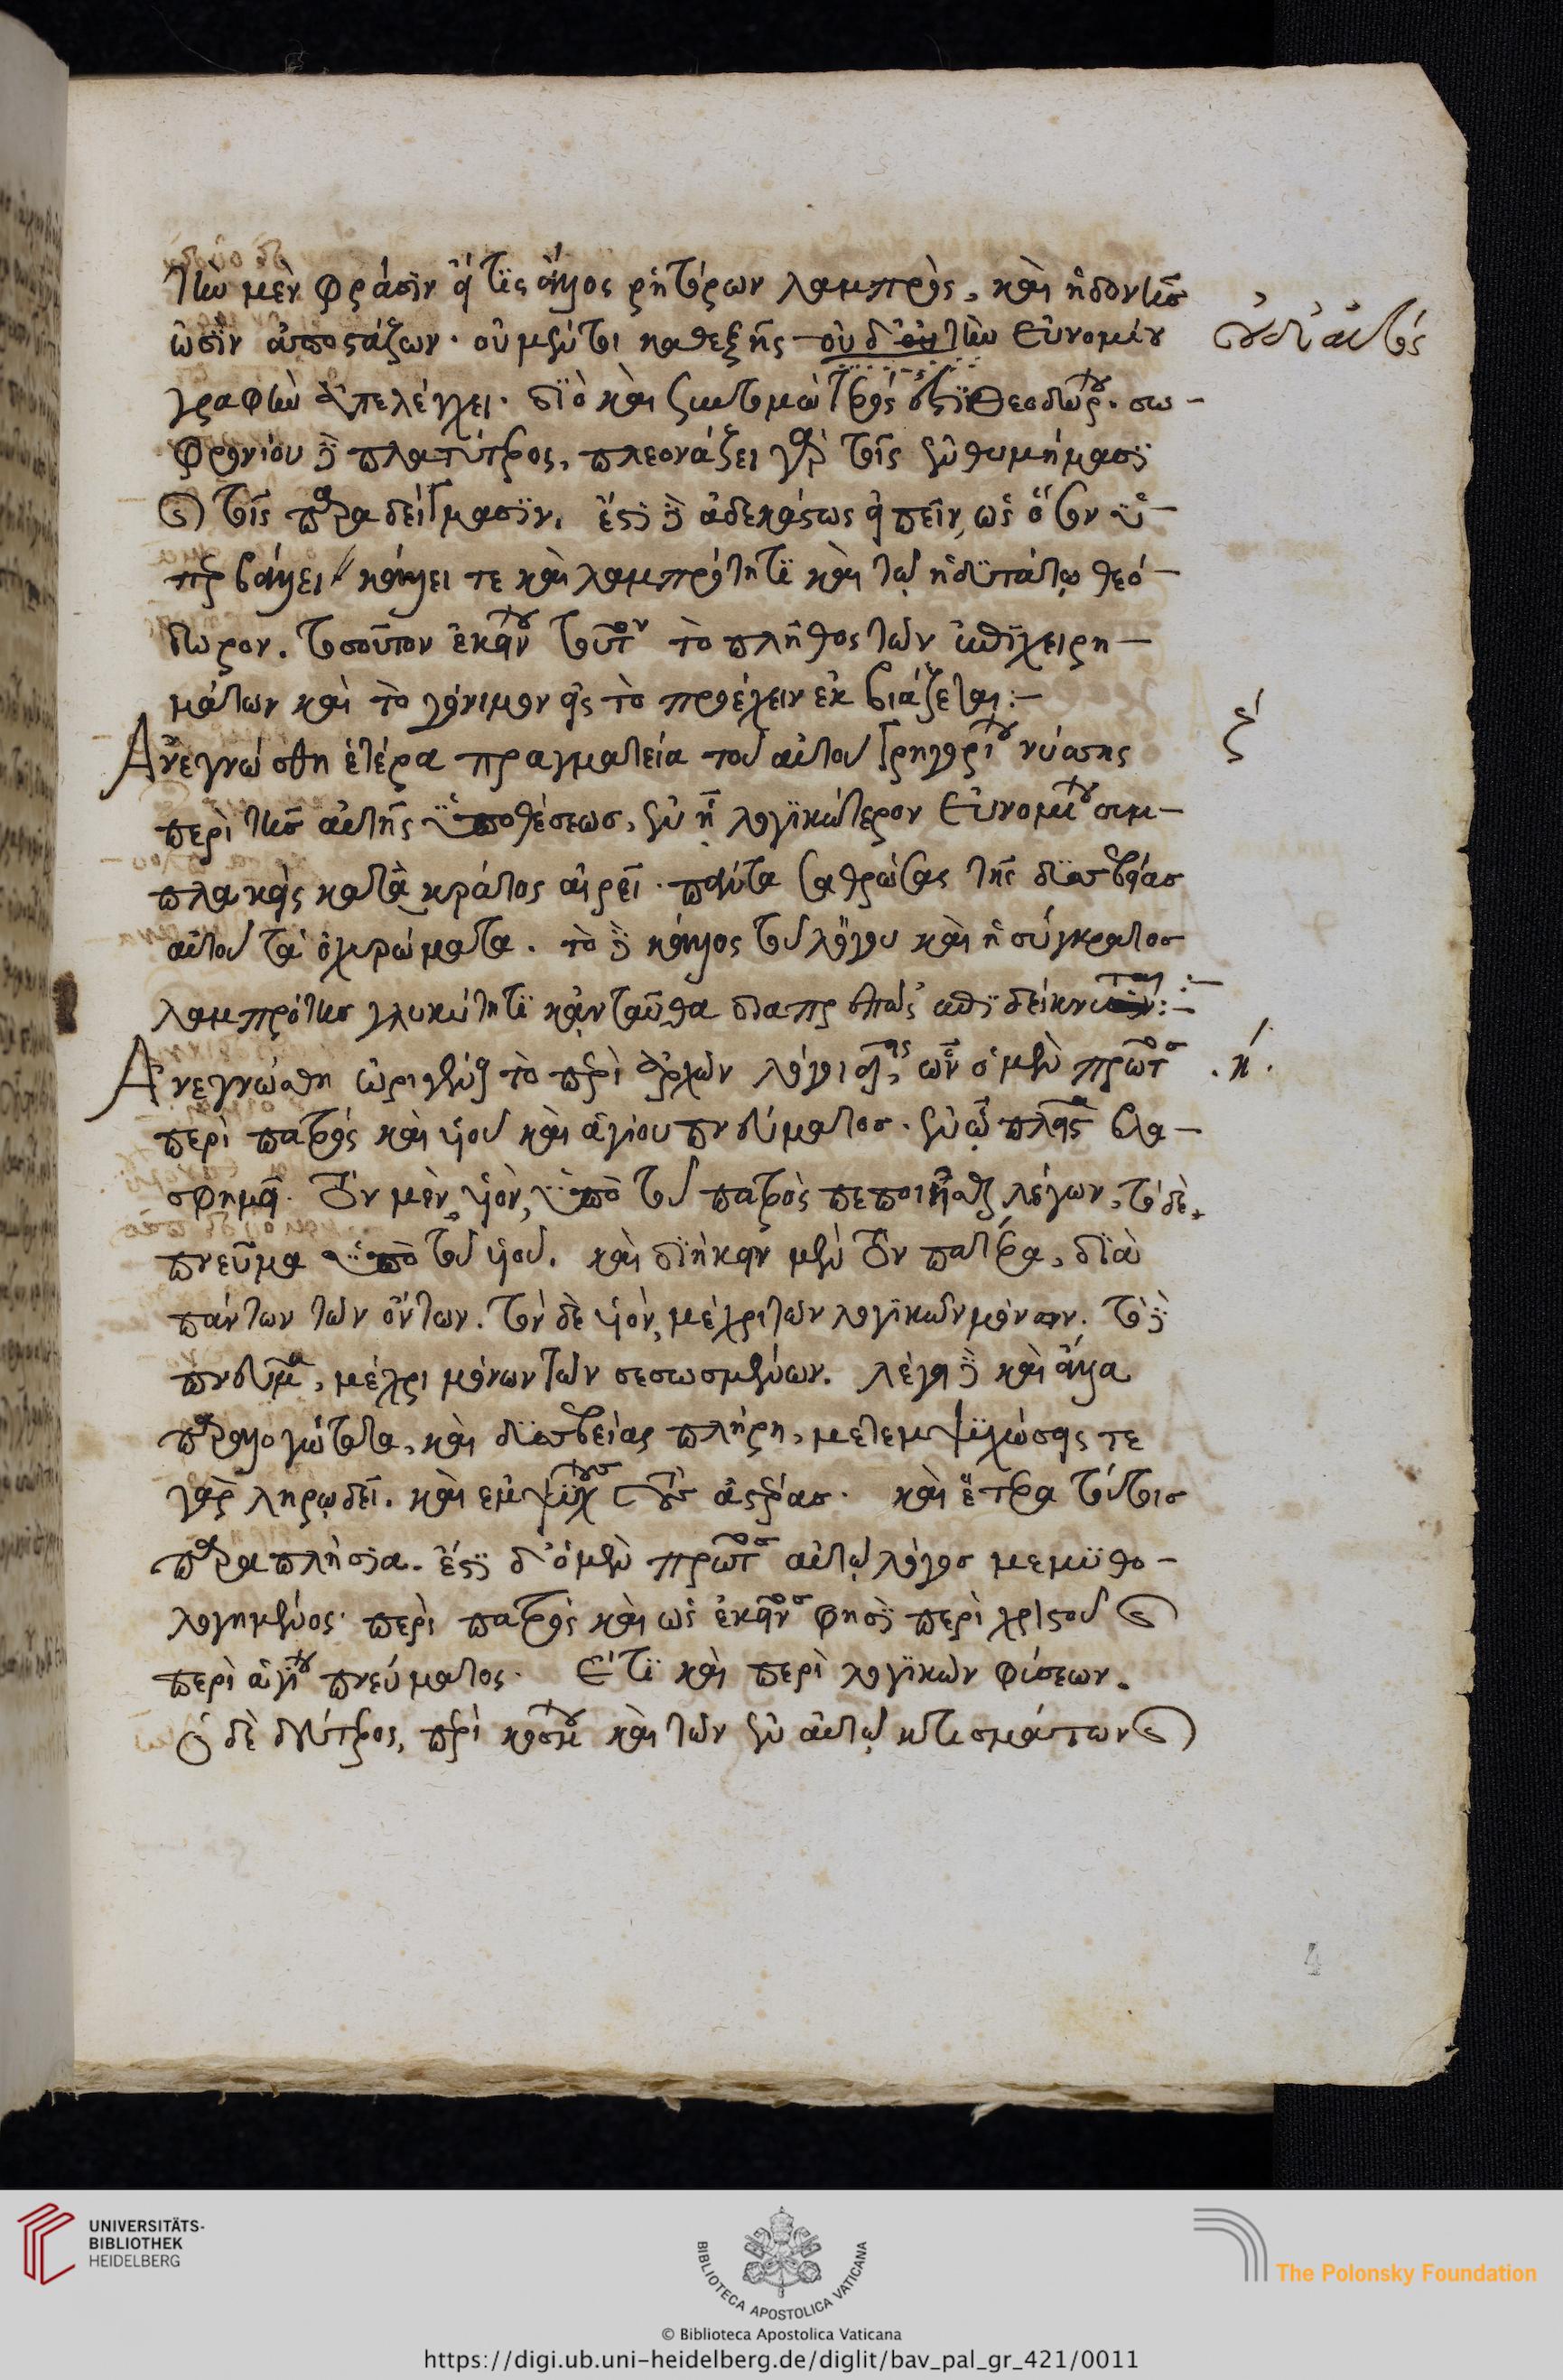 τὴν μὲν φράσιν εἴ τις ἄλλος ῥητόρων λαμπρὸς, καὶ ἡδονῆς
ὠσὶν ἀποστάζων· οὐ μέντοι καθεξῆς οὐδ' τὴν Εὐνομίου οὐδ' αὐτὸς
γραφὴν ἀπελέγχει· διὸ καὶ συντομώτερός ἐστι Θεοδώρου· σω-
φρονίου δὲ πλατύτερος, πλεονάζει γὰρ τοῖς ἐνθυμήμασι
καὶ τοῖς παραδείγμασιν. ἔστι δὲ ἀδεκάστως εἰπεῖν, ὡς ὅσον ὑ-
περβάλλει κάλλει τε καὶ λαμπρότητι καὶ τῷ ἡδυτάτῳ θεό-
δωρον. τοσοῦτον ἐκεῖνον τοῦτον τὸ πλῆθος τῶν ἐπιχειρη-
μάτων καὶ τὸ γόνιμον εἰς τὸ προέχειν ἐκβιάζεται:-
Ἀνεγνώσθη ἑτέρα πραγματεία τοῦ αὐτοῦ Γρηγορίου νύσσης ζ΄
περὶ τῆς αὐτῆς ὑποθέσεως, ἐν ᾗ λογικώτερον Εὐνομίου συμ-
πλακεὶς κατὰ κράτος αἱρεῖ· πάντα σαθρώσας τῆς δυσσεβείας
αὐτοῦ τὰ ὀχυρώματα. τὸ δὲ κάλλος τοῦ λόγου καὶ ἡ σύγκρατος
λαμπρότης γλυκύτητι κἀνταῦθα διαπρεπῶς ἐπιδείκνυται:-
Ἀνεγνώσθη ὠριγένης τὸ περὶ ἀρχῶν λόγοι ὧν ὁ μὲν πρῶτος .η΄.
περὶ πατρὸς καὶ υἱοῦ καὶ ἁγίου πνεύματος· ἐν ᾧ πλεῖστα βλα-
σφημεῖ· τὸν μὲν υἱὸν, ὑπὸ τοῦ πατρὸς πεποιῆσθαι λέγων, τὸ δὲ
πνεῦμα ὑπὸ τοῦ υἱοῦ. καὶ διήκειν μὲν τὸν πατέρα, διὰ
πάντων τῶν ὄντων. τὸν δὲ υἱὸν, μέχρι τῶν λογικῶν μόνων. τὸ δὲ
πνεῦμα, μέχρι μόνων τῶν σεσωσμένων. λέγει δὲ καὶ ἄλλα
παραλογώτατα, καὶ δυσσεβείας πλήρη, μετεμψυχώσεις τε
γὰρ ληρῳδεῖ. καὶ ἐμψύχους τοὺς ἀστέρας· καὶ ἕτερα τούτοις
παραπλήσια. ἔστι δ' ὁ μὲν πρῶτος αὐτῷ λόγος μεμυθο-
λογημένος· περὶ πατρὸς καὶ ὡς ἐκεῖνος φησὶ περὶ χριστοῦ καὶ
περὶ ἁγίου πνεύματος· Ἔτι καὶ περὶ λογικῶν φύσεων.
ὁ δὲ δεύτερος, περὶ κόσμου καὶ τῶν ἐν αὐτῷ κτισμάτων καὶ
4
UNIVERSITÄTS-
BIBLIOTHEK
HEIDELBERG
BIBLIOTECA APOSTOLICA VATICANA
The Polonsky Foundation
© Biblioteca Apostolica Vaticana
https://digi.ub.uni-heidelberg.de/diglit/bav_pal_gr_421/0011